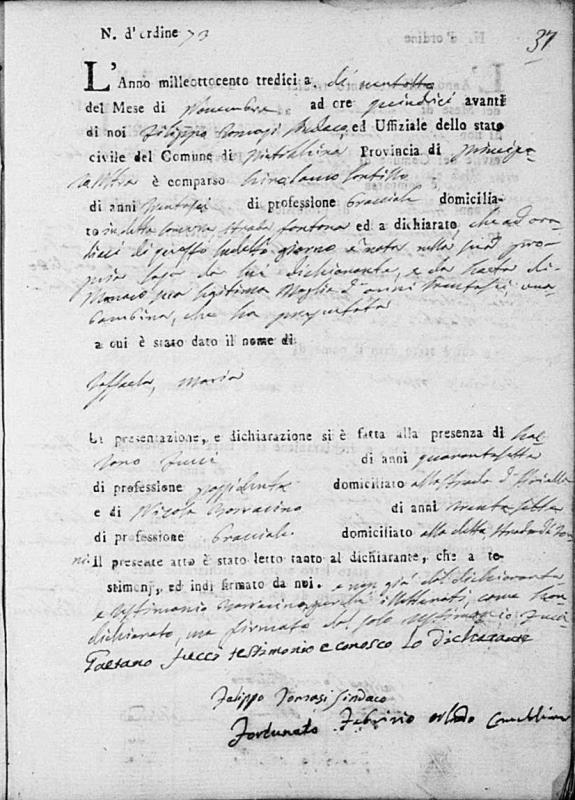 N. d'ordine 73
37
L'Anno milleottocento tredici a dì ventotto
del Mese di Novembre ad ore quindici avanti
di noi Filippo Tomasi Sindaco, ed Uffiziale dello stato
civile del Comune di Provincia di Principa-
è comparso
di anni di professione bracciale domicilia-
to in detto Comune strada fontana ed a dichiarato che ad ore
dieci di questo suddetto giorno è nata nella sua pro-
pria casa da lui dichiarante, e da
Monaco sua legitima Moglie d'anni una
bambina, che ha presentata
a cui è stato dato il nome di
Raffaela, Maria
La presentazione, e dichiarazione si è fatta alla presenza di Gae-
tano Fucci di anni quarantasette
di professione possidente domiciliato alla strada d'
e di Nicola di anni trentasette
di professione bracciale domiciliato alla detta strada di
Il presente atto è stato letto tanto al dichiarante, che a te-
stimonj, ed indi firmato da noi. e non già dal dichiarante
e testimonio perchè illetterati, come han
dichiarato, ma firmato dal solo testimonio Fucci
Gaetano Fucci testimonio e conosco lo dichiarante
Filippo Tomasi Sindaco
Fortunato Fabrizio Orlando